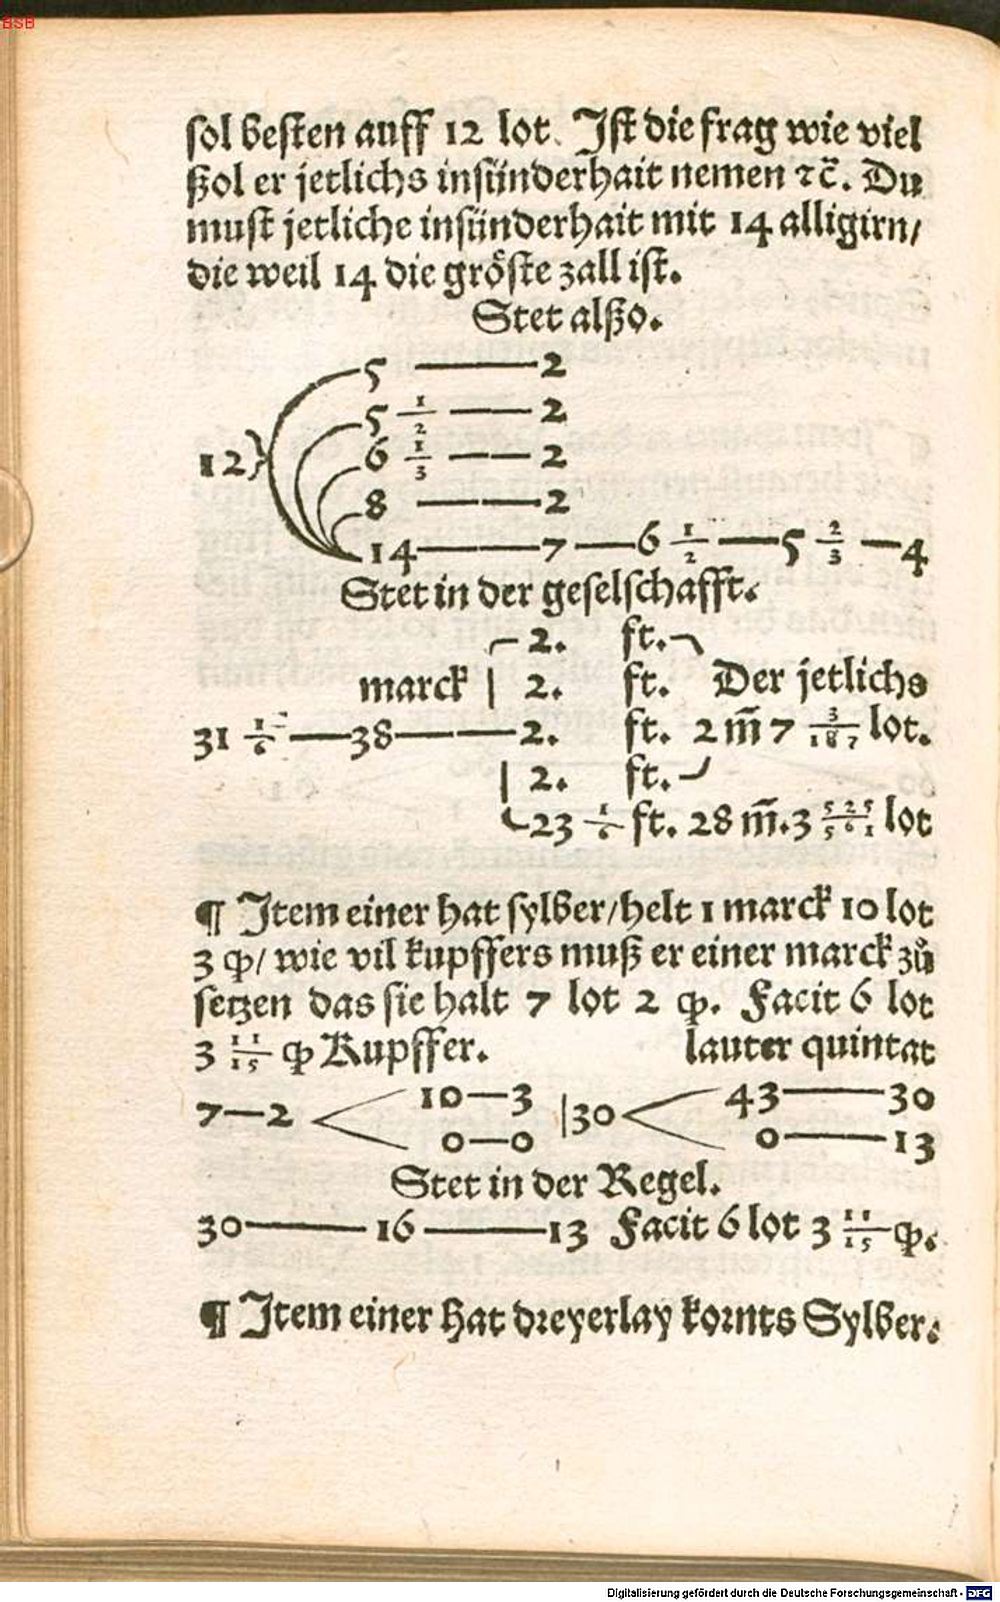 BSB
sol besten auff 12 lot. Ist die frag wie viel
ßol er jetlichs insünderhait nemen ꝛc̃. Du
must jetliche insünderhait mit 14 alligirn/
die weil 14 die gröste zall ist.
Stet alßo.
5 —— 2
5 1/2 —— 2
12} 6 1/3 —— 2
8 —— 2
14 —— 7 — 6 1/2 — 5 2/3 — 4
Stet in der geselschafft.
2. ft.
marck 2. ft. Der jetlichs
31 1/6 — 38 —— 2. ft. 2 m̃ 7 3/187 lot.
2. ft.
23 1/6 ft. 28 m̃. 3 525/561 lot
¶ Item einer hat sylber/helt 1 marck 10 lot
3 qͥ/ wie vil kupffers muß er einer marck zů
setzen das sie halt 7 lot 2 qͥ. Facit 6 lot
3 11/15 qͥ Kupffer. lauter quintat
7 — 2 < 10 — 3 | 30 < 43 —— 30
0 — 0 0 —— 13
Stet in der Regel.
30 —— 16 —— 13 Facit 6 lot 3 11/15 qͥ.
¶ Item einer hat dreyerlay kornts Sylber.
Digitalisierung gefördert durch die Deutsche Forschungsgemeinschaft - DFG